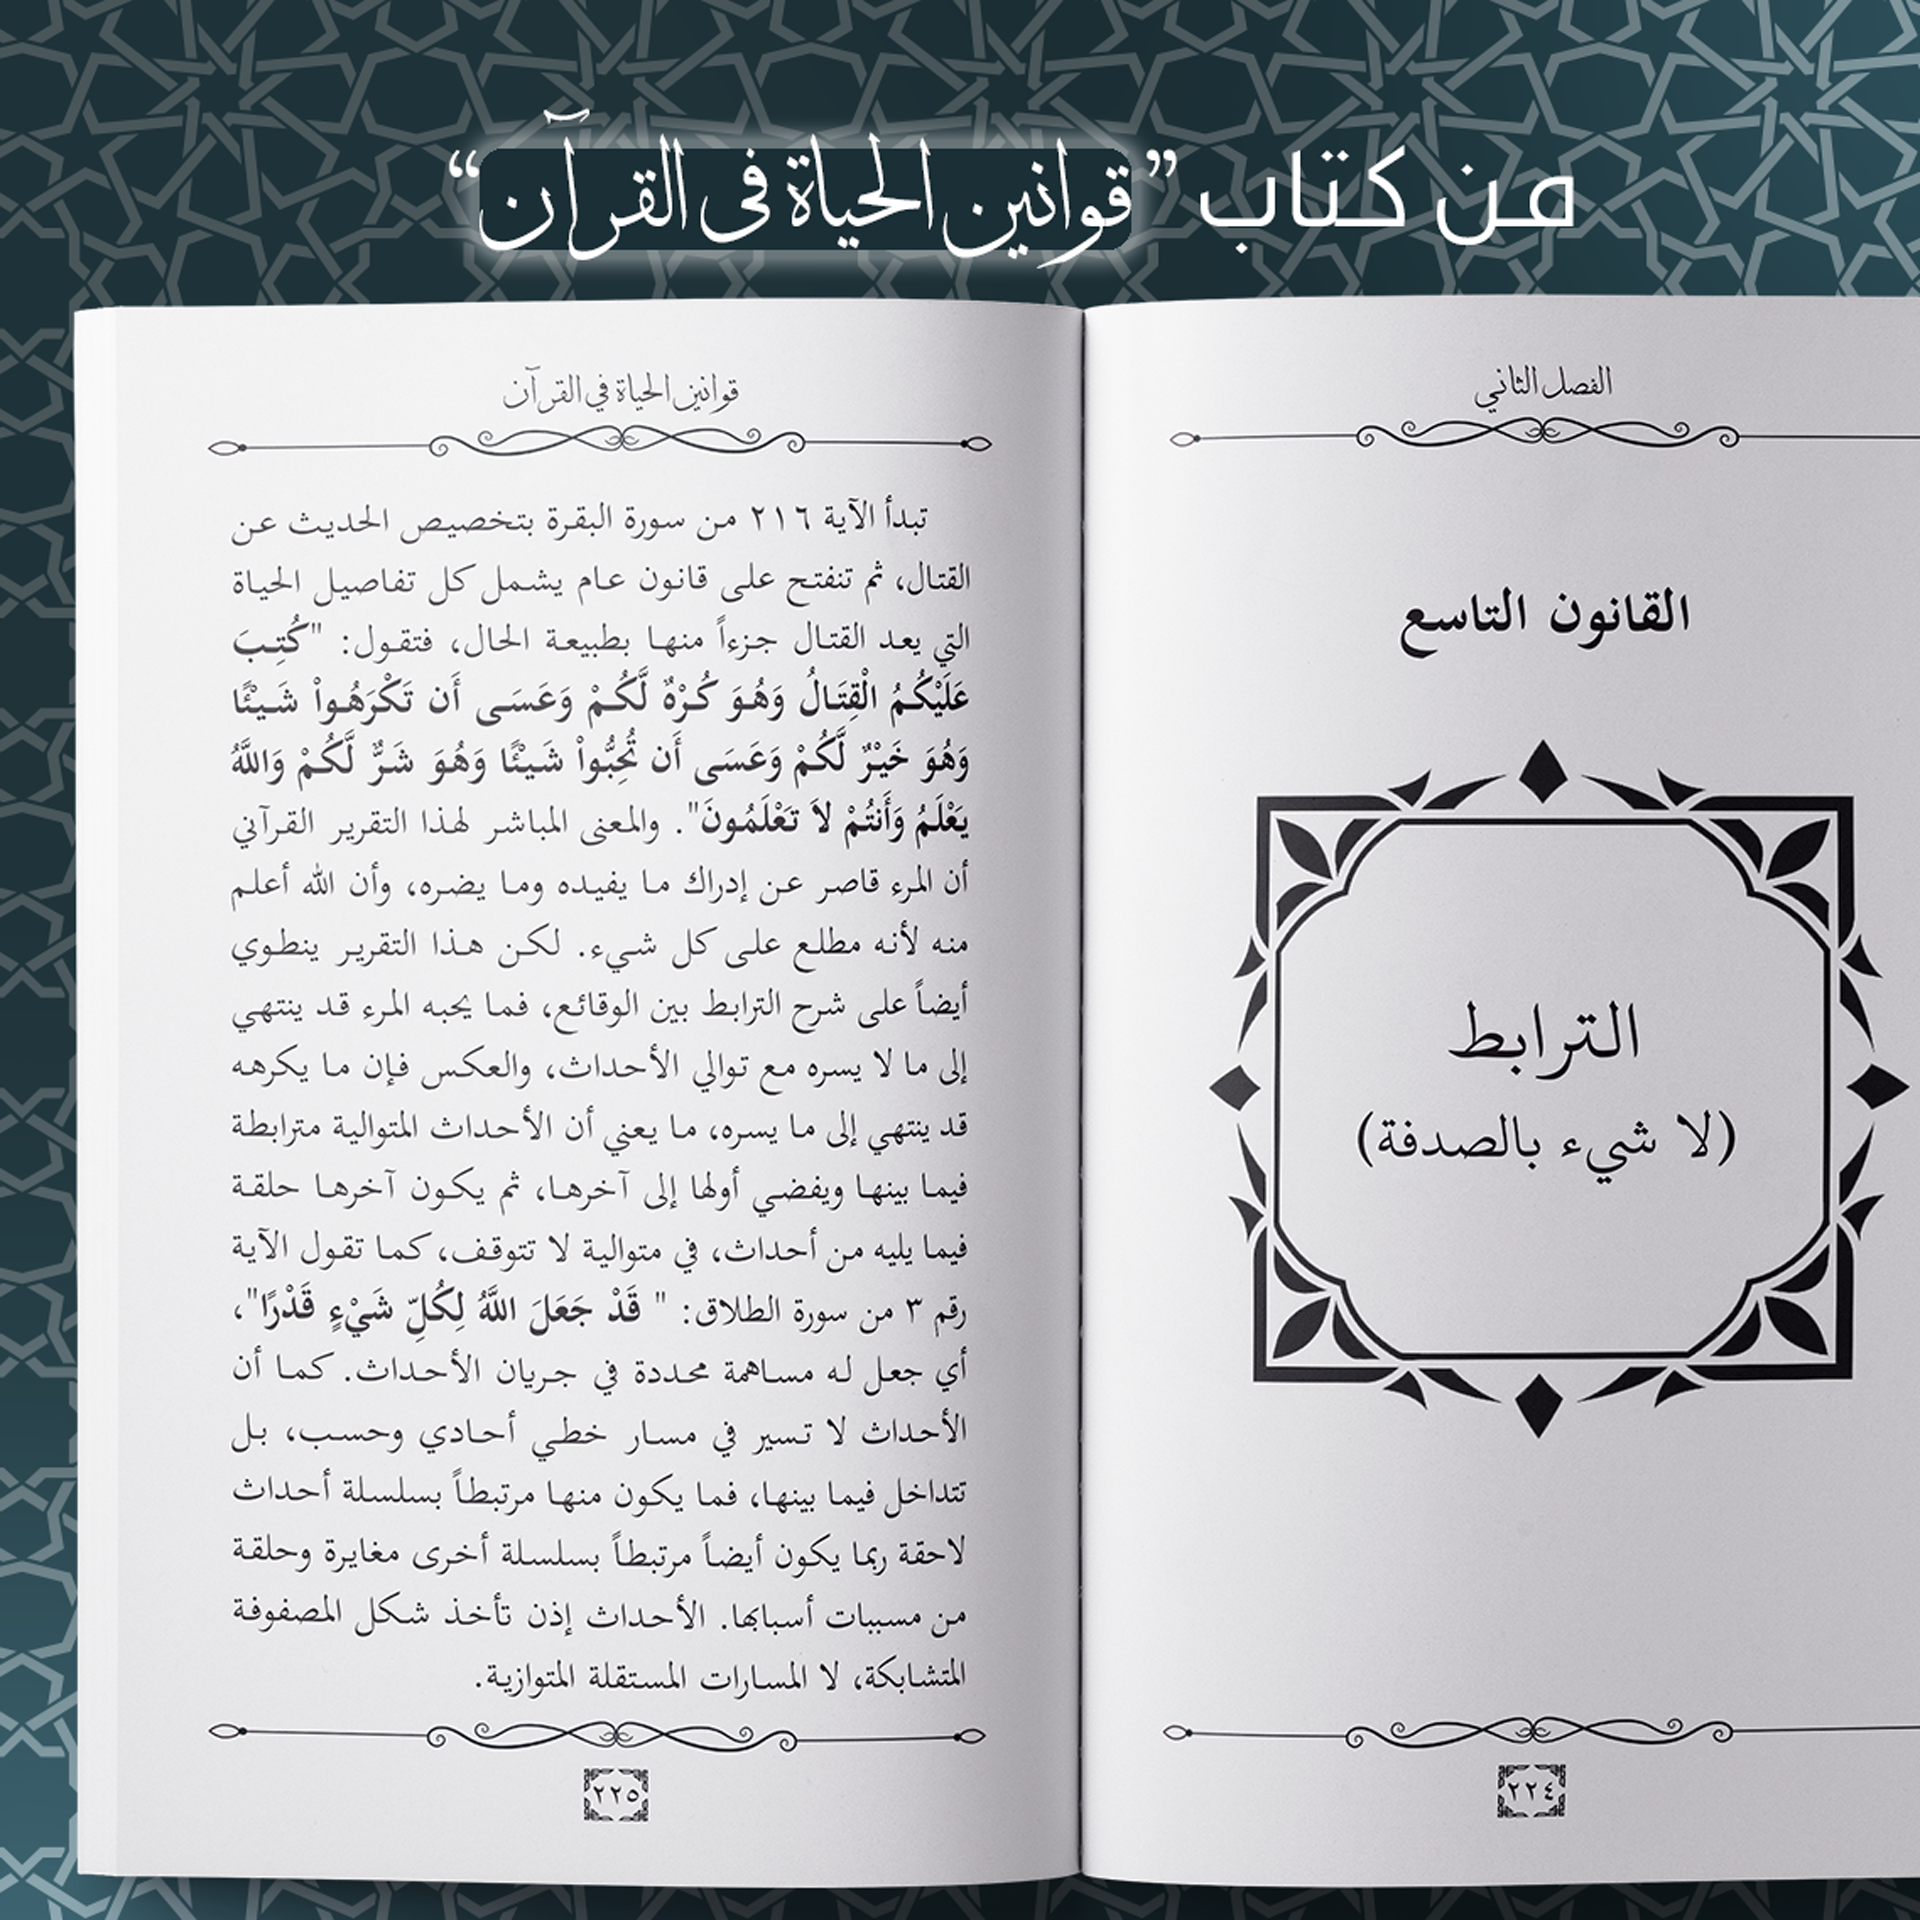 من كتاب "قوانين الحياة في القرآن"
الفصل الثاني
القانون التاسع
الترابط
(لا شيء بالصدفة)
٢٢٤
قوانين الحياة في القرآن
تبدأ الآية ٢١٦ من سورة البقرة بتخصيص الحديث عن
القتال، ثم تنفتح على قانون عام يشمل كل تفاصيل الحياة
التي يعد القتال جزءاً منها بطبيعة الحال، فتقول: "كُتِبَ
عَلَيْكُمُ الْقِتَالُ وَهُوَ كُرْهٌ لَّكُمْ وَعَسَى أَن تَكْرَهُواْ شَيْئًا
وَهُوَ خَيْرٌ لَّكُمْ وَعَسَى أَن تُحِبُّواْ شَيْئًا وَهُوَ شَرٌّ لَّكُمْ وَاللَّهُ
يَعْلَمُ وَأَنتُمْ لاَ تَعْلَمُونَ". والمعنى المباشر لهذا التقرير القرآني
أن المرء قاصر عن إدراك ما يفيده وما يضره، وأن الله أعلم
منه لأنه مطلع على كل شيء. لكن هذا التقرير ينطوي
أيضاً على شرح الترابط بين الوقائع، فما يحبه المرء قد ينتهي
إلى ما لا يسره مع توالي الأحداث، والعكس فإن ما يكرهه
قد ينتهي إلى ما يسره، ما يعني أن الأحداث المتوالية مترابطة
فيما بينها ويفضي أولها إلى آخرها، ثم يكون آخرها حلقة
فيما يليه من أحداث، في متوالية لا تتوقف، كما تقول الآية
رقم ٣ من سورة الطلاق: " قَدْ جَعَلَ اللَّهُ لِكُلِّ شَيْءٍ قَدْرًا"،
أي جعل له مساهمة محددة في جريان الأحداث. كما أن
الأحداث لا تسير في مسار خطي أحادي وحسب، بل
تتداخل فيما بينها، فما يكون منها مرتبطاً بسلسلة أحداث
لاحقة ربما يكون أيضاً مرتبطاً بسلسلة أخرى مغايرة وحلقة
من مسببات أسبابها. الأحداث إذن تأخذ شكل المصفوفة
المتشابكة، لا المسارات المستقلة المتوازية.
٢٢٥